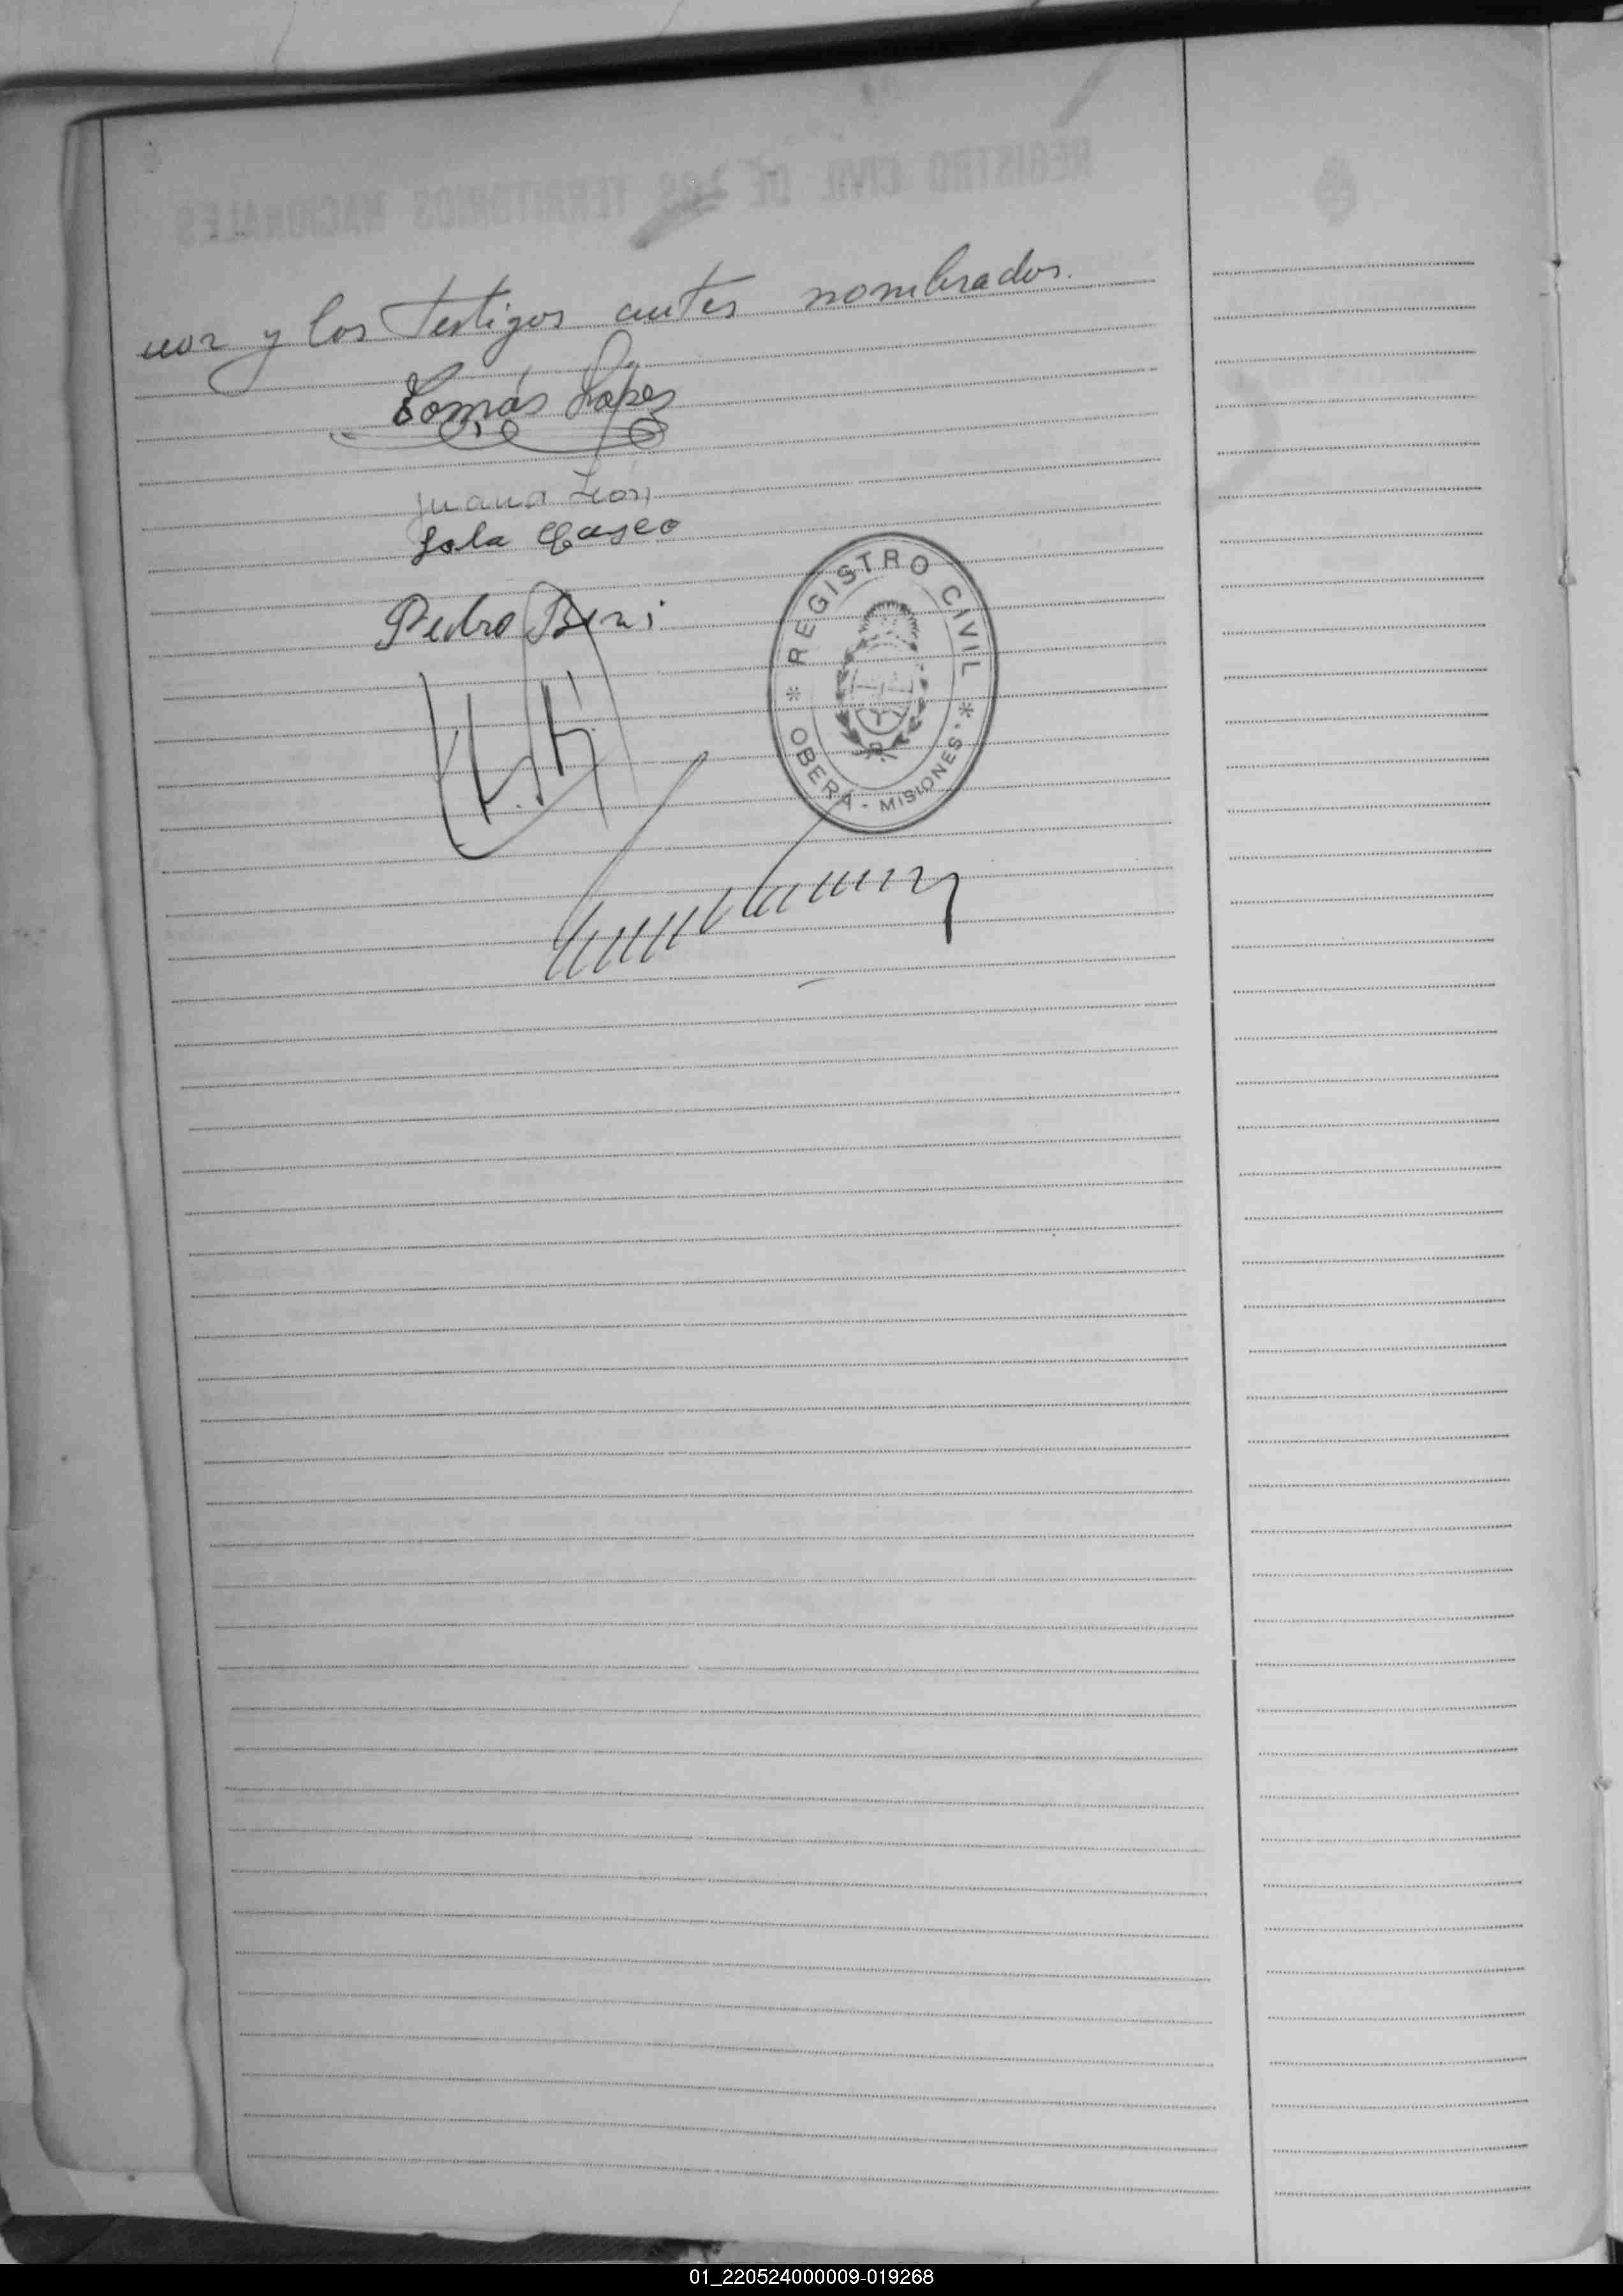 nor y los Testigos antes nombrados.
Tomás Lopez
Juana León
Lola
Pedro
REGISTRO CIVIL
* OBERÁ - MISIONES - *
REGISTRO CIVIL DE LOS TERRITORIOS NACIONALES
01_220524000009-019268